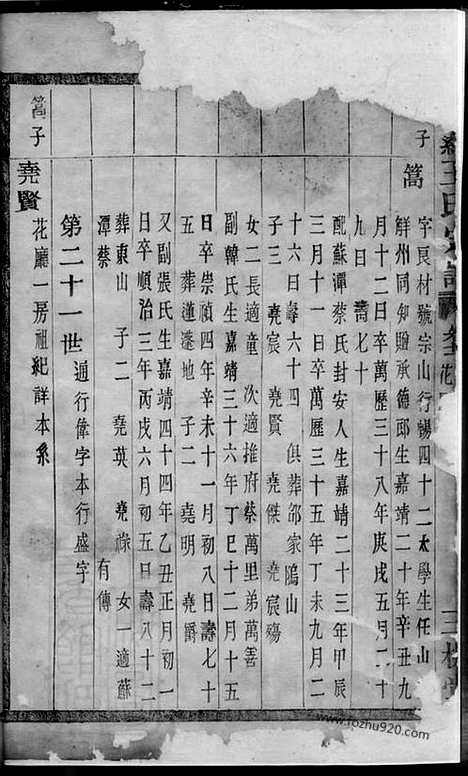 王氏宗譜
三槐堂
子
篙 字良材號宗山行暢四十二太學生任山
鮮州同知贈承德郎生嘉靖二十年辛丑九
月十二日卒萬歷三十八年庚戌五月二十
九日 壽七十
配蘇潭蔡氏封安人生嘉靖二十三年甲辰
三月十一日卒萬歷三十五年丁未九月二
十六日壽六十四 俱葬邵家隝山
子三 堯宸 堯賢 堯傑 堯宸殤
女二長適童 次適推府蔡萬里弟萬善
副韓氏生嘉靖三十六年丁巳十二月十五
日卒崇禎四年辛未十一月初八日壽七十
五 葬蓮蓬地 子二 堯明 堯爵
又副張氏生嘉靖四十四年乙丑正月初一
日卒順治三年丙戌六月初五日壽八十二
葬東山 子二 堯英 堯祿 女一適蘇
潭蔡 有傳
第二十一世 通行偉字本行盛字
篙子 堯賢 花廳一房祖紀詳本系
www.rozhu920.com